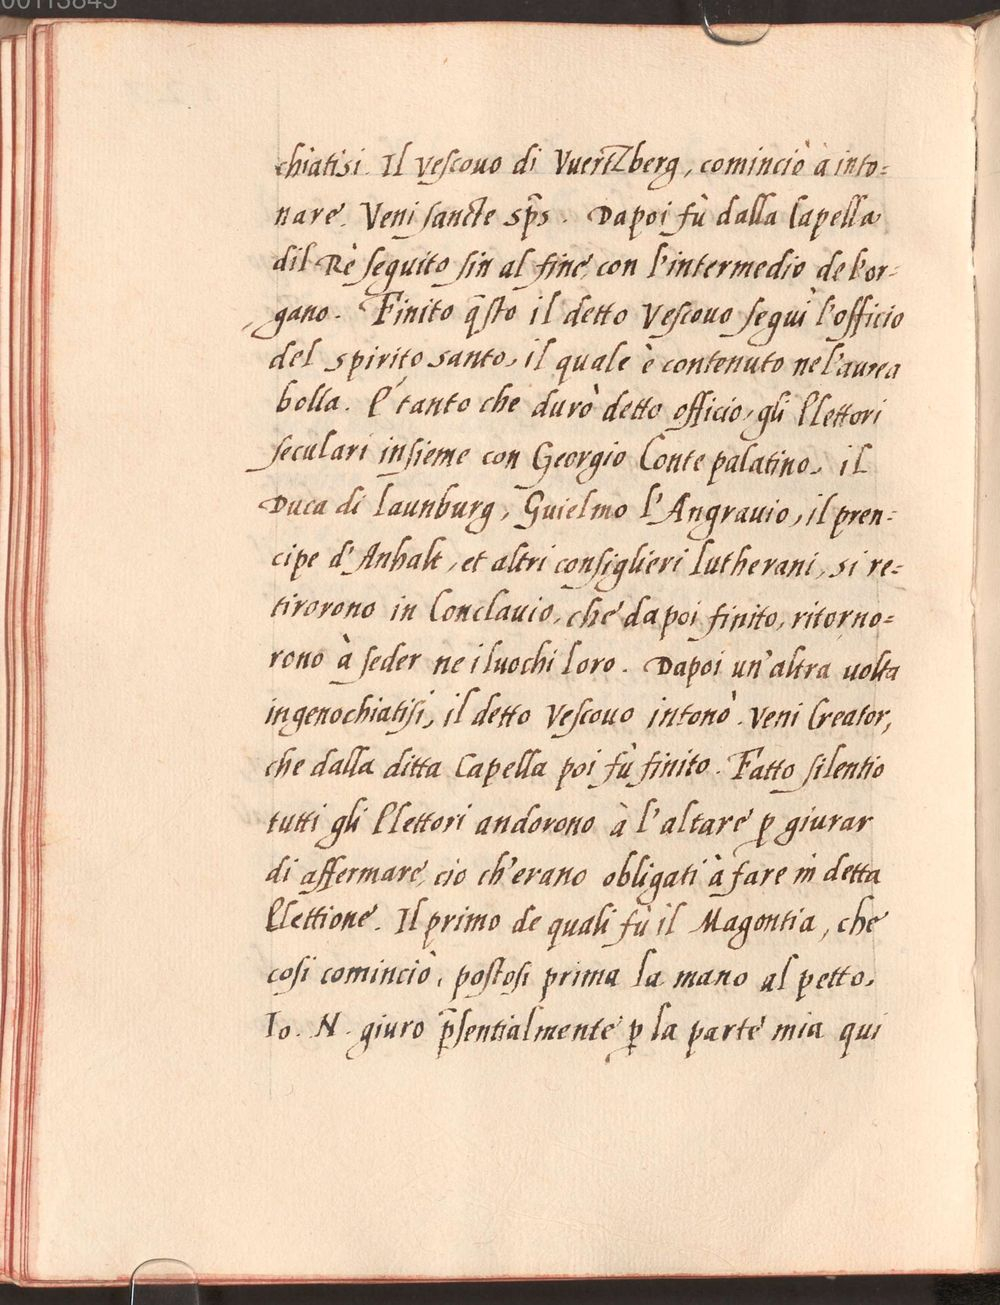 00113845
chiatisi. Il Vescouo di VuertZberg, cominciò à into=
nare. Veni sancte sp̄s. Dapoi fù dalla Capella
dil Rè seguito sin al fine, con l'intermedio de l'or=
gano. Finito q̄sto il detto Vescouo seguì l'officio
del spirito santo, il quale è contenuto nel'aurea
bolla. E' tanto che durò detto officio, gli Elettori
seculari insieme con Georgio Conte palatino, il
Duca di Launburg, Guielmo l'Angrauio, il pren=
cipe d'Anhalt, et altri consiglieri lutherani, si re=
tirorono in Conclauio, che dapoi finito, ritorno=
rono à seder ne i luochi loro. Dapoi un'altra uolta
ingenochiatisi, il detto Vescouo intonò. Veni Creator,
che dalla ditta Capella poi fù finito. Fatto silentio
tutti gli Elettori andorono à l'altare ꝑ giurar
di affermare, cio ch'erano obligati à fare in detta
Elettione. Il primo de quali fù il Magontia, che
cosi cominciò, postosi prima la mano al petto.
Io. N. giuro p̄sentialmente ꝑ la parte mia qui